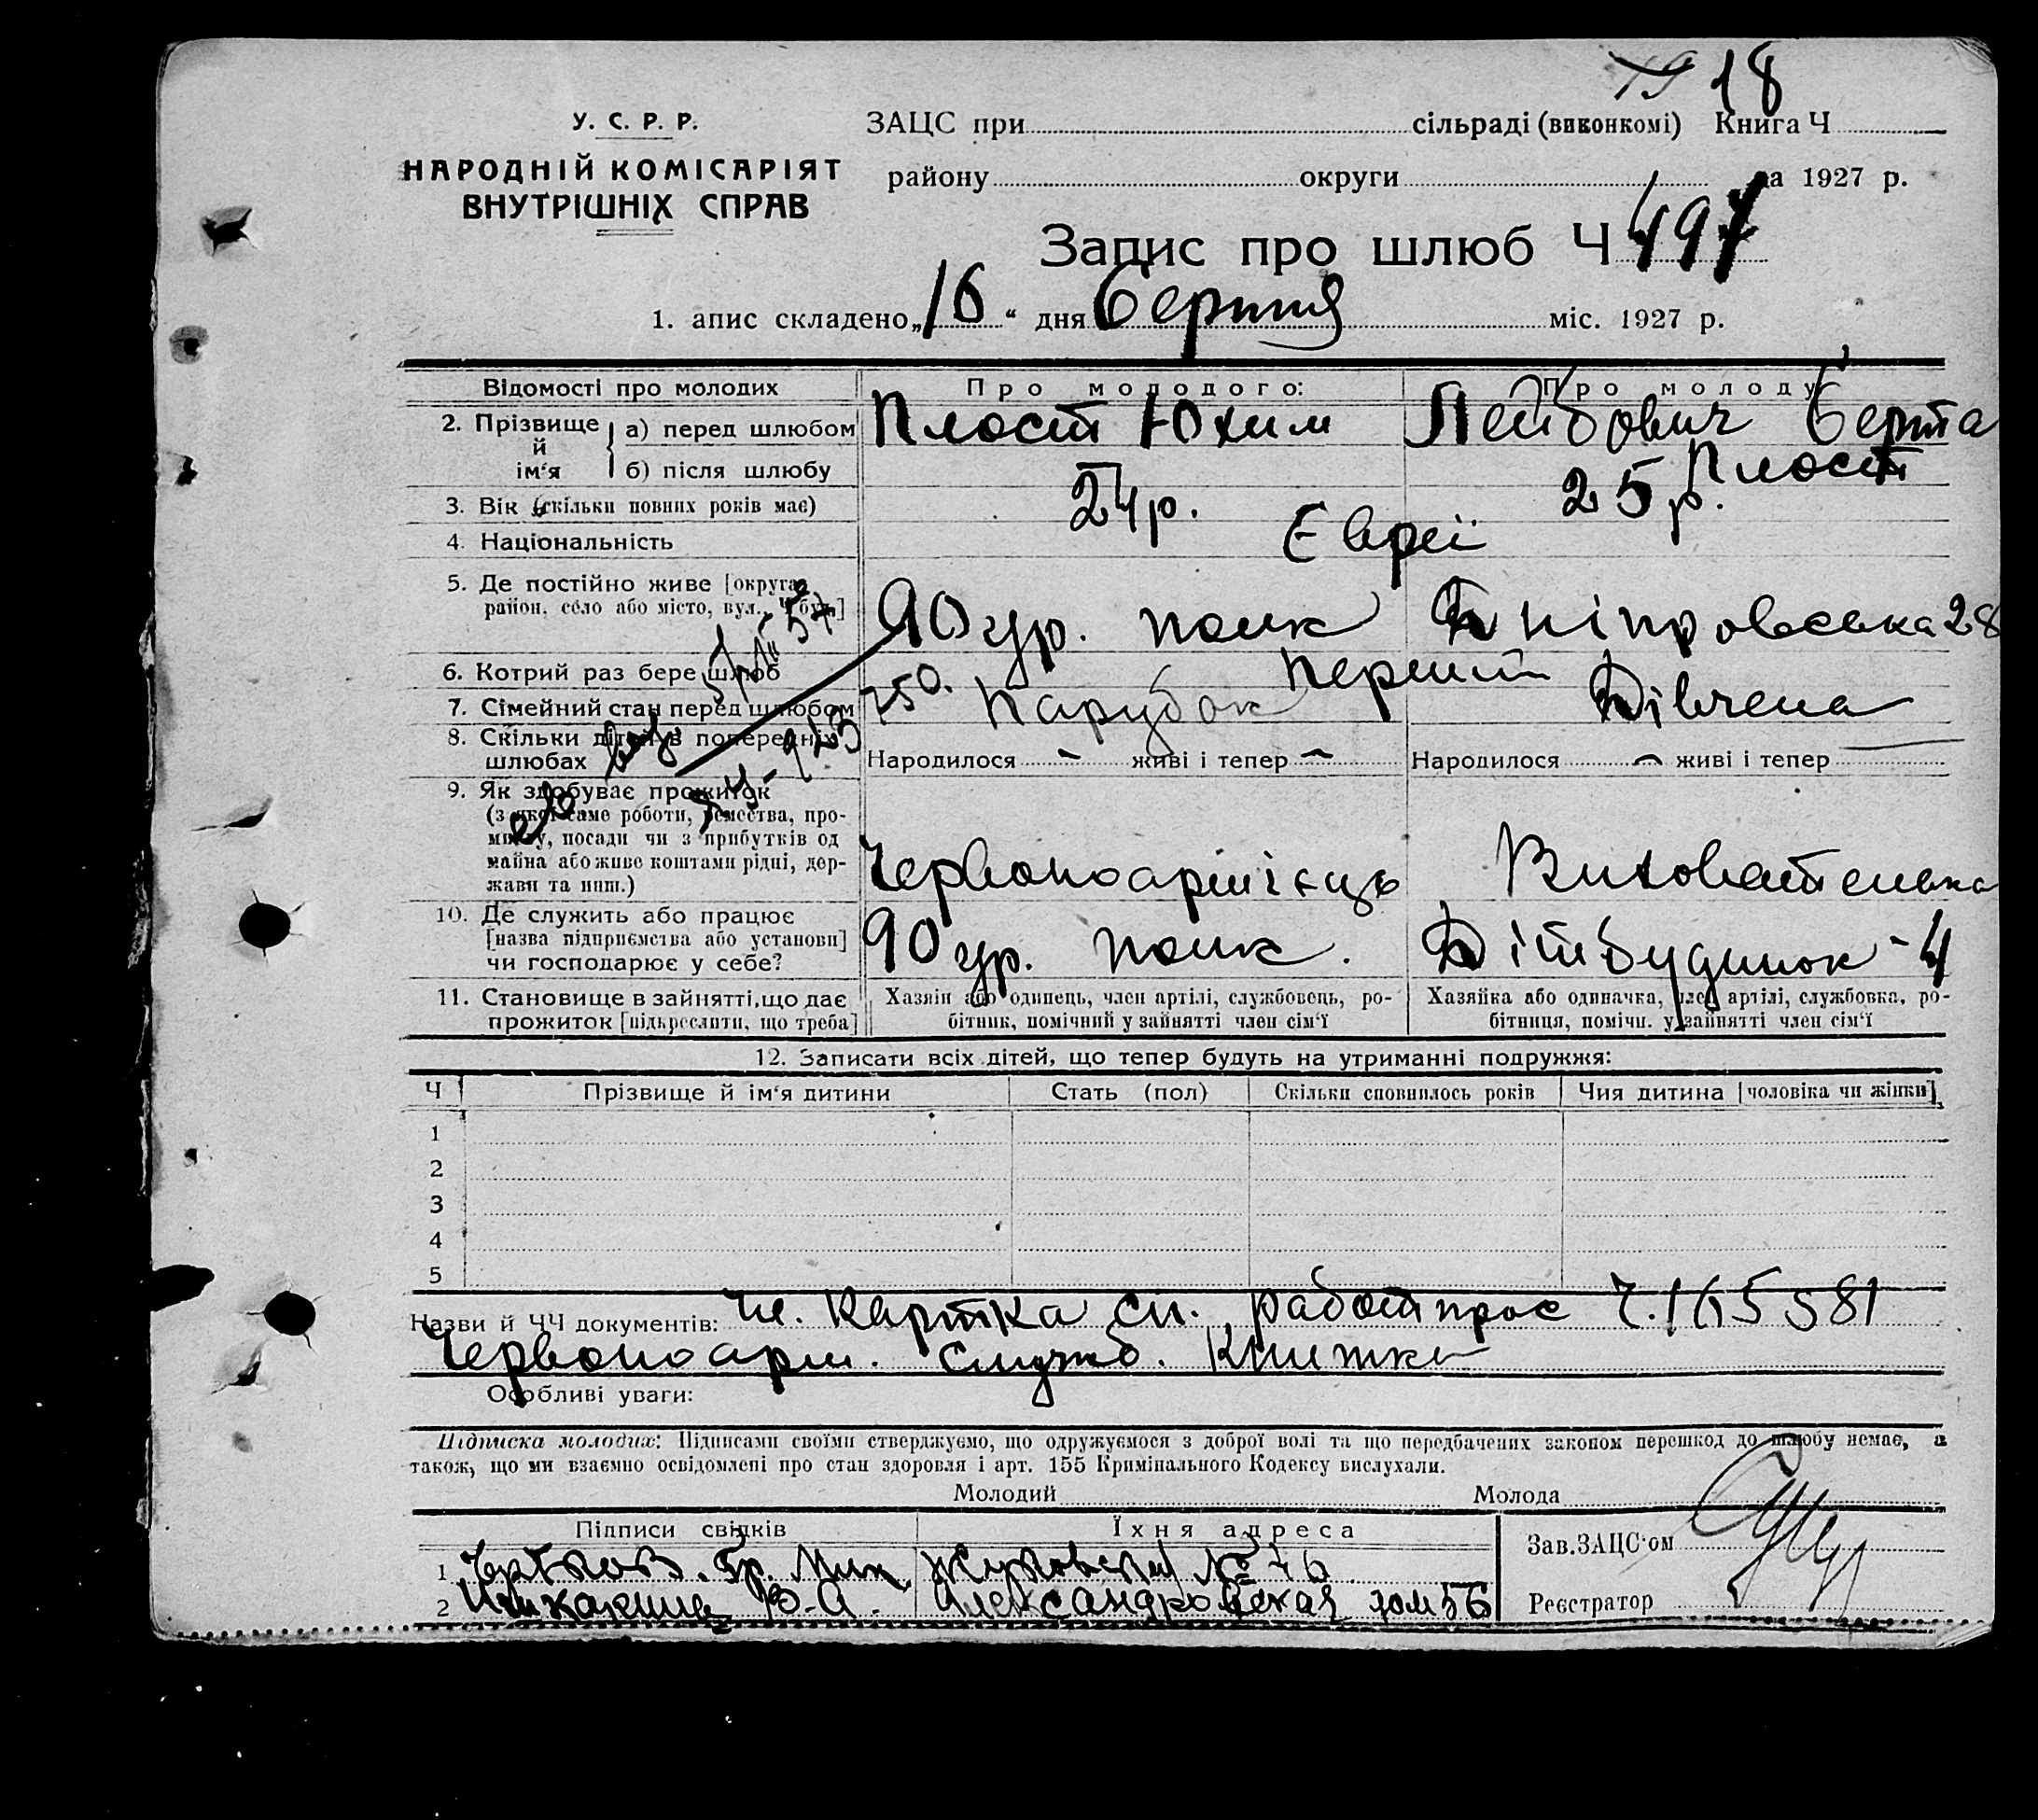 18
У. С. Р. Р.
НАРОДНІЙ КОМІСАРІЯТ
ВНУТРІШНІХ СПРАВ
ЗАЦС при сільраді (виконкомі) Книга Ч
району округи за 1927 р.
Запис про шлюб Ч 497
1. апис складено „16“ дня Серпня міс. 1927 р.
Відомості про молодих Про молодого: Про молоду
2. Прізвище й ім‘я а) перед шлюбом Плост Юхим Лейбович Берта
б) після шлюбу Плост
3. Вік (скільки повних років має) 24 р. 25 р.
4. Національність Євреї
5. Де постійно живе [округа, район, село або місто, вул., Ч буд.] 90 ур. полк Дніпровська 28
6. Котрий раз бере шлюб Перший
7. Сімейний стан перед шлюбом Парубок Дівчена
8. Скільки дітей в попередніх шлюбах Народилося – живі і тепер – Народилося – живі і тепер
9. Як здобуває прожиток
(з якої саме роботи, ремества, про-
мислу, посади чи з прибутків од
майна або живе коштами рідні, дер-
жави та инш.) Червоноармієць Вихователька
10. Де служить або працює
[назва підприємства або установи]
чи господарює у себе? 90 ур. полк. Дітбудинок - 4
11. Становище в зайнятті, що дає
прожиток [підкреслити, що треба]
Хазяїн або одинець, член артілі, службовець, ро-
бітник, помічний у зайнятті член сім‘ї
Хазяйка або одиначка, член артілі, службовка, ро-
бітниця, помічн. у зайнятті член сім‘ї
12. Записати всіх дітей, що тепер будуть на утриманні подружжя:
Ч Прізвище й ім‘я дитини Стать (пол) Скільки сповнилось років Чия дитина [чоловіка чи жінки]
1
2
3
4
5
Назви й ЧЧ документів: Чл. Картка сп. работпрос Ч. 165581
Червоноарм. служб. Книжка
Особливі уваги:
Підписка молодих: Підписами своїми стверджуємо, що одружуємося з доброї волі та що передбачених законом перешкод до шлюбу немає, а
також, що ми взаємно освідомлені про стан здоровля і арт. 155 Кримінального Кодексу вислухали.
Молодий Молода
Підписи свідків Їхня адреса
Зав. ЗАЦС‘ом
1 Жуковская № 76
2 В. А. Александровская дом 56
Реєстратор